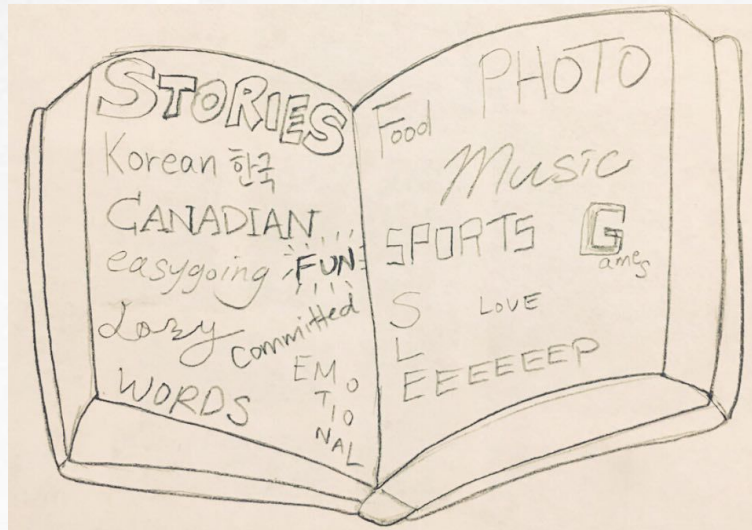 STORIES
Korean 한국
CANADIAN
easygoing FUN
Lazy Committed
WORDS
EMO
TIO
NAL
Food PHOTO
Music
SPORTS Games
S LOVE
L
EEEEEEP